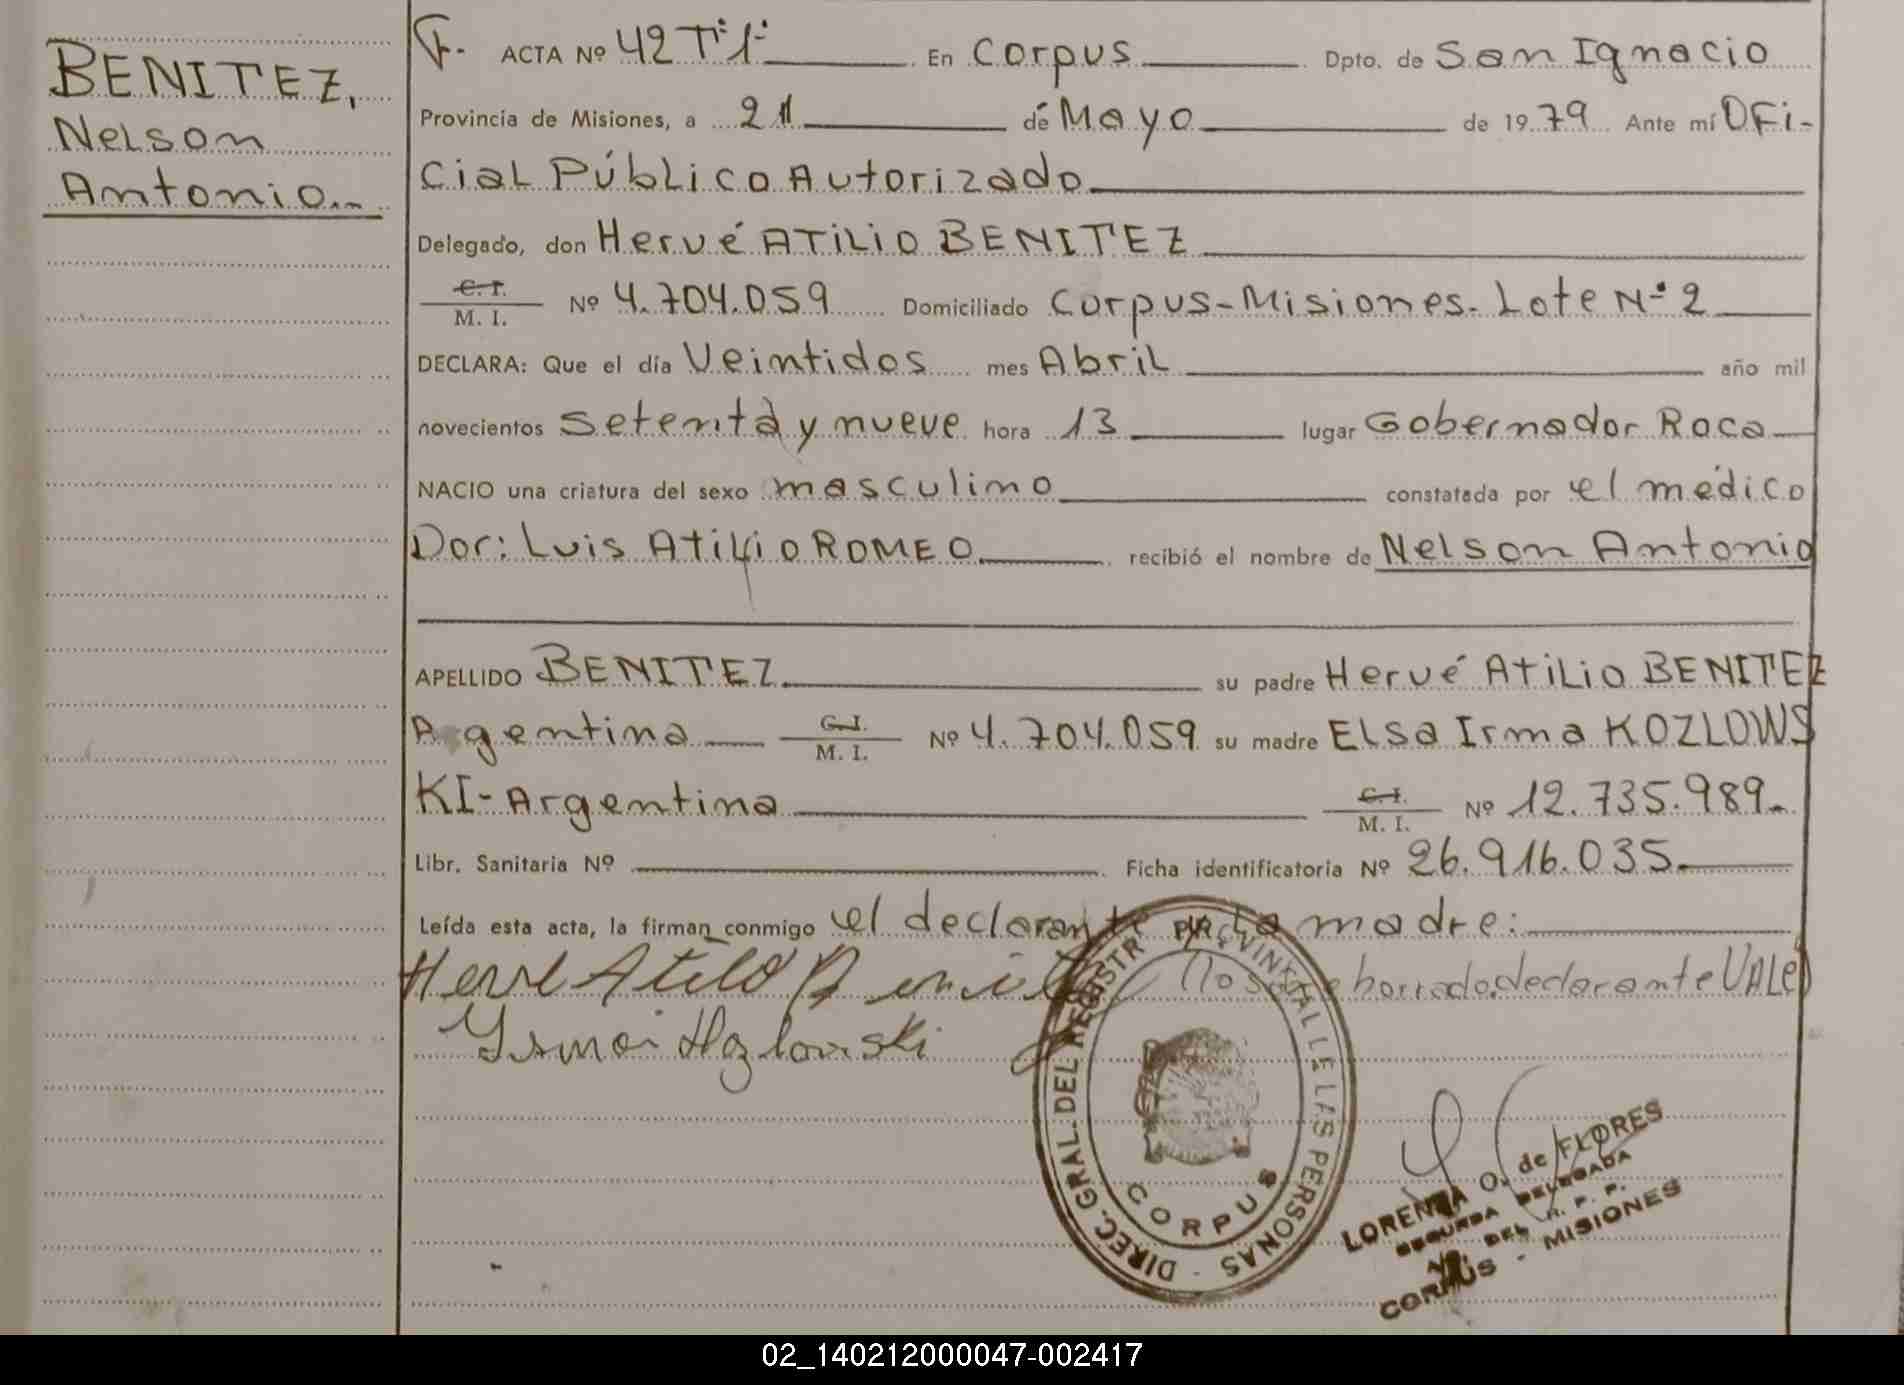 BENITEZ,
Nelson
Antonio
F. ACTA Nº 42 Tº 1º En Corpus Dpto. de San Ignacio
Provincia de Misiones, a 21 de Mayo de 1979 Ante mí OFi-
cial Público Autorizado
Delegado, don Hervé ATILIO BENITEZ
C. I. M. I. Nº 4.704.059 Domiciliado Corpus-Misiones. Lote Nº 2
DECLARA: Que el día Veintidos mes Abril año mil
novecientos setenta y nueve hora 13 lugar Gobernador Roca
NACIO una criatura del sexo masculino constatada por el médico
Dor: Luis Atilio ROMEO recibió el nombre de Nelson Antonio
APELLIDO BENITEZ su padre Hervé Atilio BENITEZ
Argentina C. I. M. I. Nº 4.704.059 su madre Elsa Irma KOZLOWS
KI-Argentina C. I. M. I. Nº 12.735.989.-
Libr. Sanitaria Nº Ficha identificatoria Nº 26.916.035.
Leída esta acta, la firman conmigo el declarante y la madre:
borrado: declarante VALE
Irma Kozlowski
DIREC. GRAL. DEL REGISTR PROVINCIAL DE LAS PERSONAS - CORPUS
LORENZA O. de FLORES
SEGUNDA DELEGADA
DEL R. P. P.
CORPUS - MISIONES
02_140212000047-002417